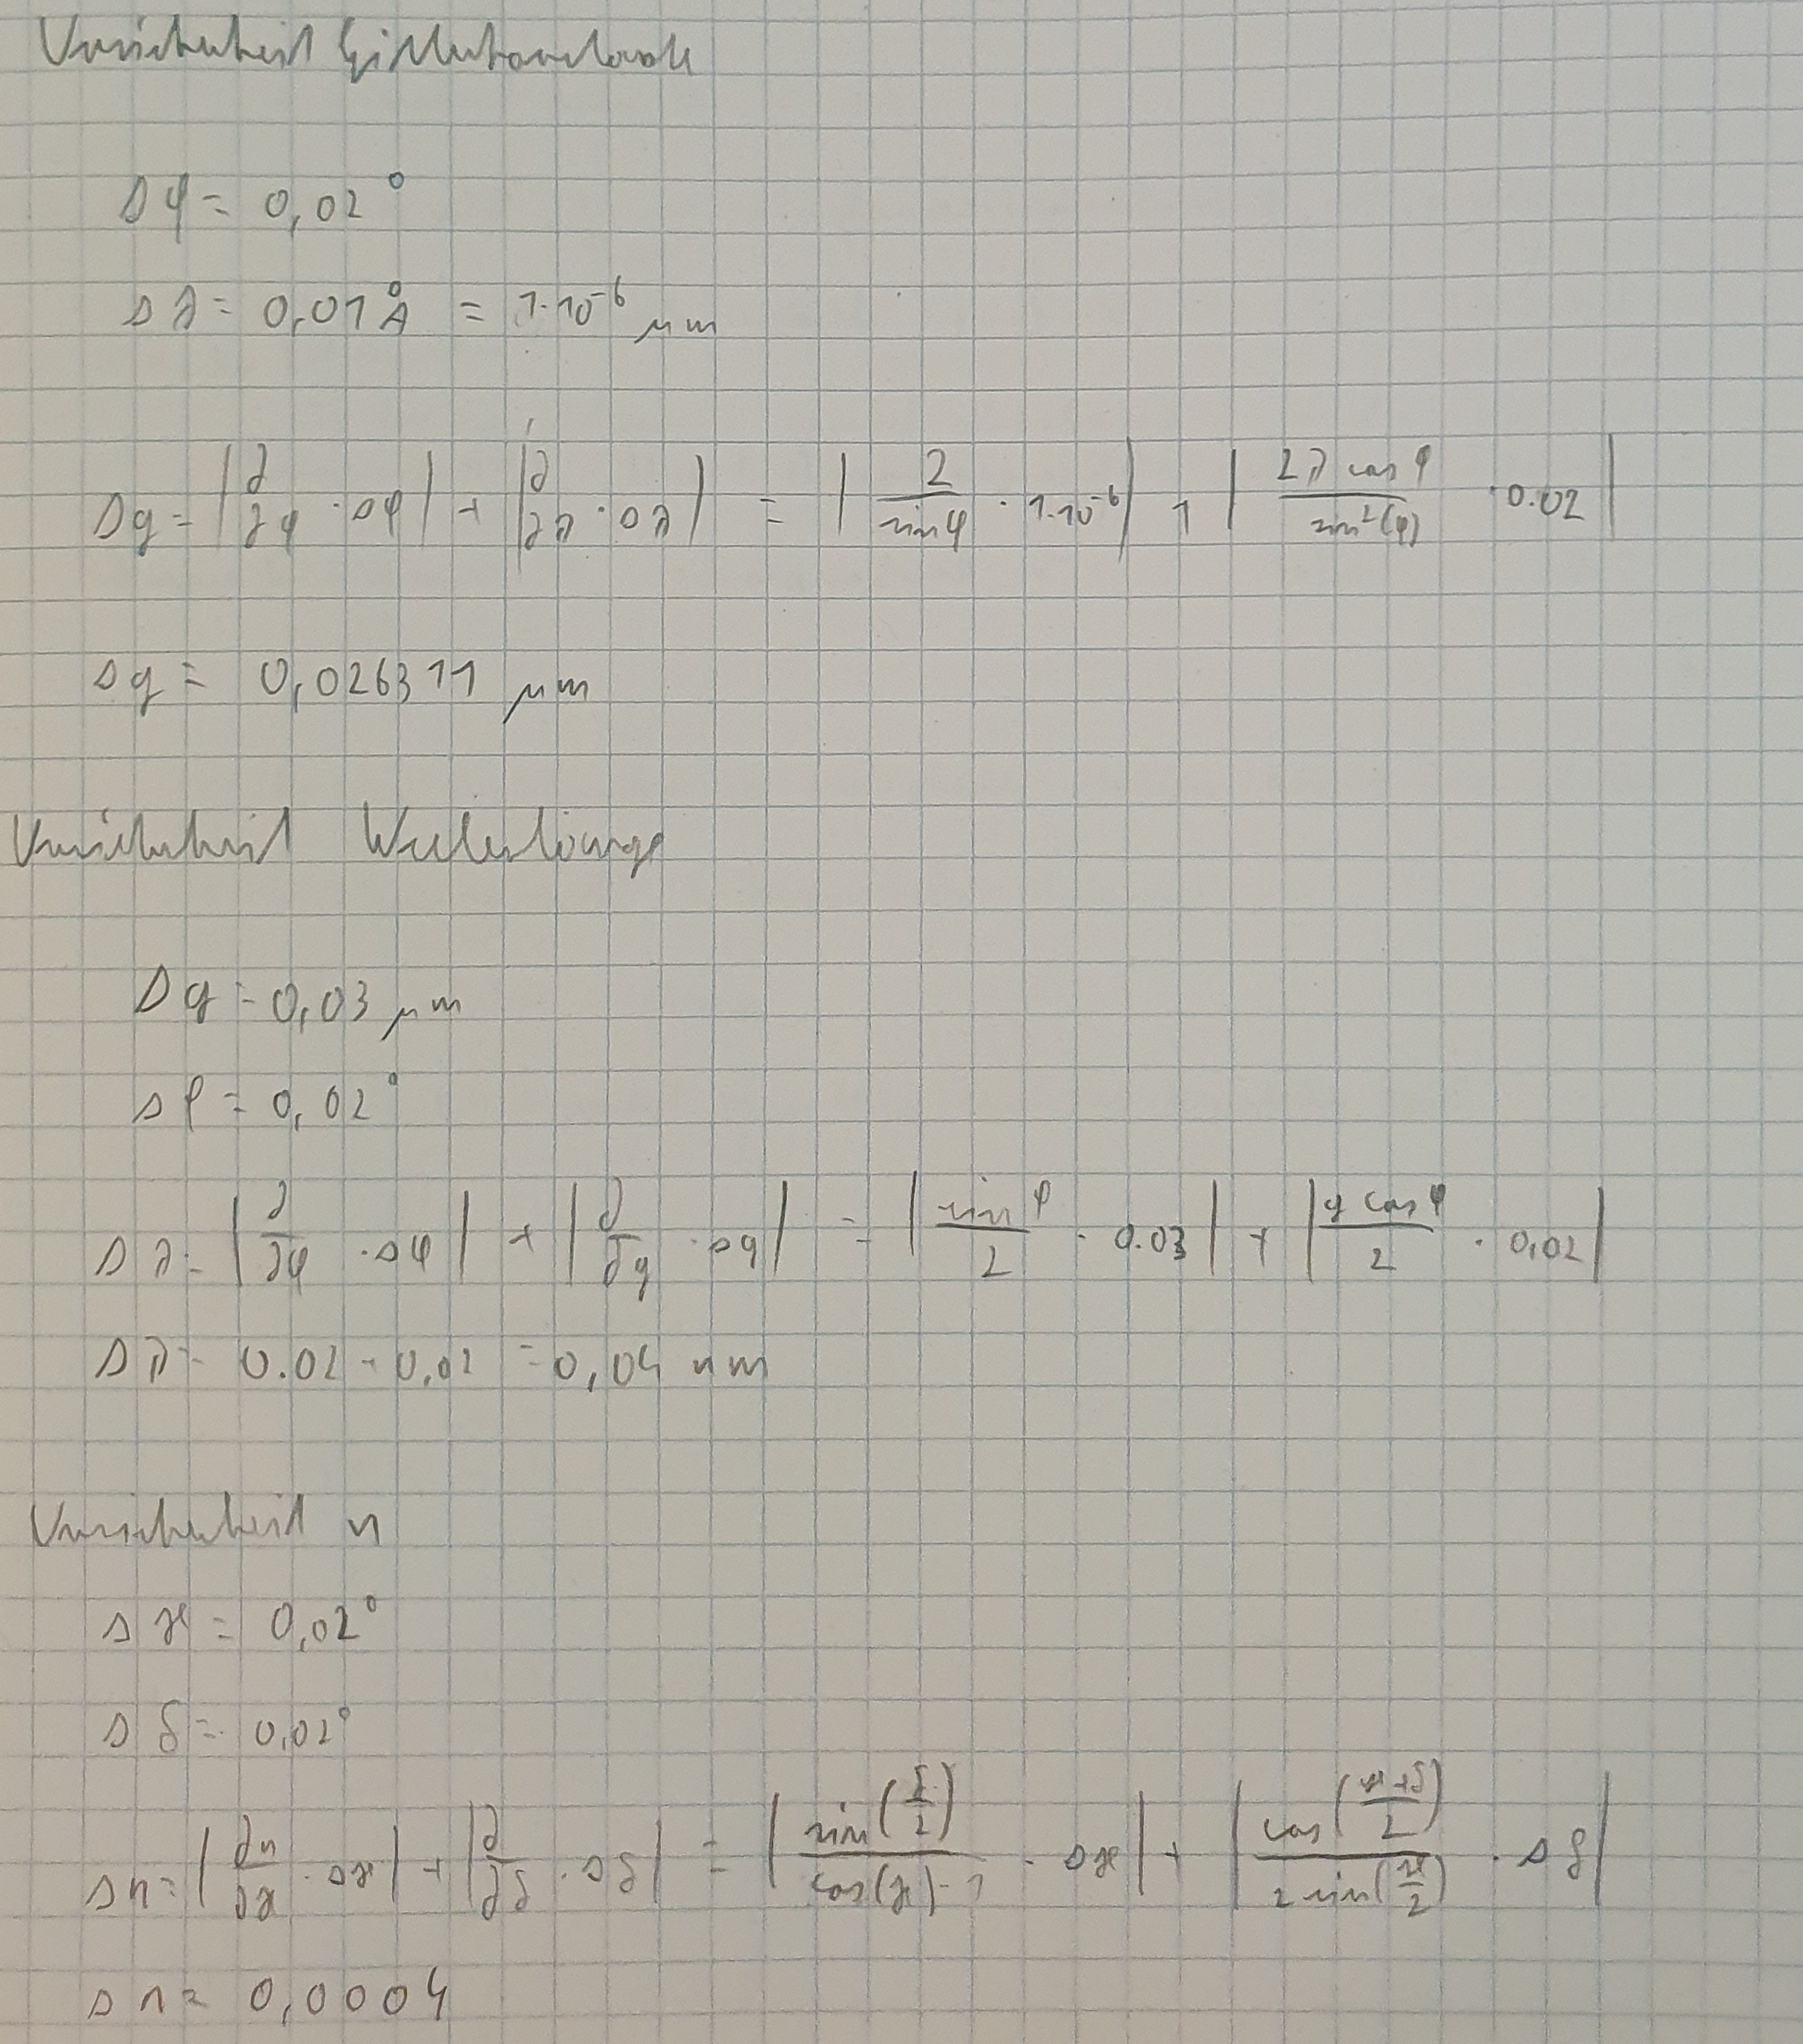 Unsicherheit Gitterkonstante
Δφ = 0,02°
Δλ = 0,01 Å = 1·10⁻⁶ μm
Δg = |∂/∂φ · Δφ| + |∂/∂λ · Δλ| = |2/sin φ · 1·10⁻⁶| + |2λ cos φ/sin²(φ) · 0.02|
Δg = 0,026311 μm
Unsicherheit Wellenlänge
Δg = 0,03 μm
Δφ = 0,02°
Δλ = |∂/∂φ · Δφ| + |∂/∂g · Δg| = |sin φ/2 · 0.03| + |g cos φ/2 · 0,02|
Δλ = 0.02 + 0,02 = 0,04 nm
Unsicherheit n
Δγ = 0,02°
Δδ = 0,02°
Δn = |∂n/∂γ · Δγ| + |∂/∂δ · Δδ| = |sin(δ/2)/cos(γ)-1 · Δγ| + |cos(γ+δ/2)/2 sin(γ/2) · Δδ|
Δn = 0,0004